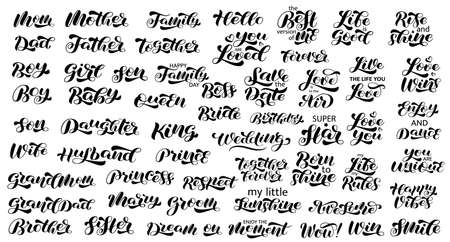 Mom Mother Family Hello
the Best version of me
Life is Good
Rise and shine
Dad Father Together
you are Loved
Forever
Boy Girl Son
HAPPY Family DAY
Boss
Save the Date
Love is in the Air
Love THE LIFE YOU Live
Love Wins
Boy Baby Queen
Bride
Birthday
Enjoy AND Dance
Son Daughter King
Wedding
SUPER Star
Love you
you ARE Unique
Wife Husband Prince
Together Forever
Born to Shine
Life Rules
GrandMom Princess Respect
my little Sunshine
Awesome
Happy Vibes
GrandDad Marry Groom
Brother Sister Dream on
ENJOY THE Moment
Wow! Win Smile